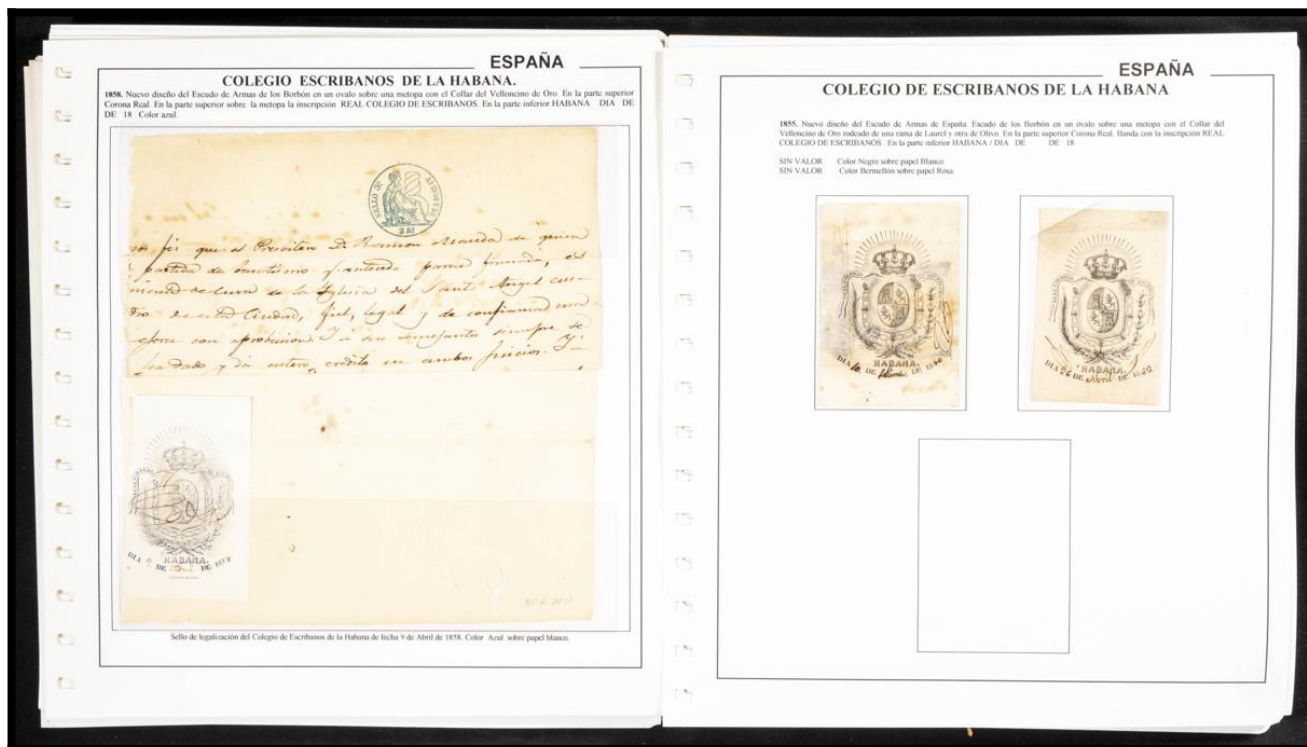 ESPAÑA
COLEGIO ESCRIBANOS DE LA HABANA.
1858. Nuevo diseño del Escudo de Armas de los Borbón en un ovalo sobre una metopa con el Collar del Velloncino de Oro. En la parte superior
Corona Real. En la parte superior sobre la metopa la inscripción REAL COLEGIO DE ESCRIBANOS. En la parte inferior HABANA DIA DE
DE 18 Color azul.
SELLO 3º
2 RI
fés que el Presbitero D. Ramon de quien
partida de bautismo y antecede parece firmada, es
de Cura de la Iglesia del Santo Angel cus-
dio de esta Ciudad, fiel, legal y de confianza
ejerce con aprobacion. Y á sus semejantes siempre se
ha dado y dá entero credito en ambos juicios. Y
HABANA.
DIA 9 DE Abril DE 1858
Sello de legalización del Colegio de Escribanos de la Habana de fecha 9 de Abril de 1858. Color Azul sobre papel blanco.
ESPAÑA
COLEGIO DE ESCRIBANOS DE LA HABANA
1855. Nuevo diseño del Escudo de Armas de España. Escudo de los Borbón en un óvalo sobre una metopa con el Collar del
Velloncino de Oro rodeado de una rama de Laurel y otra de Olivo. En la parte superior Corona Real. Banda con la inscripción REAL
COLEGIO DE ESCRIBANOS. En la parte inferior HABANA / DIA DE DE 18
SIN VALOR Color Negro sobre papel Blanco.
SIN VALOR Color Bermellón sobre papel Rosa
HABANA.
DIA DE DE 18
HABANA.
DIA 26 DE Abril DE 18